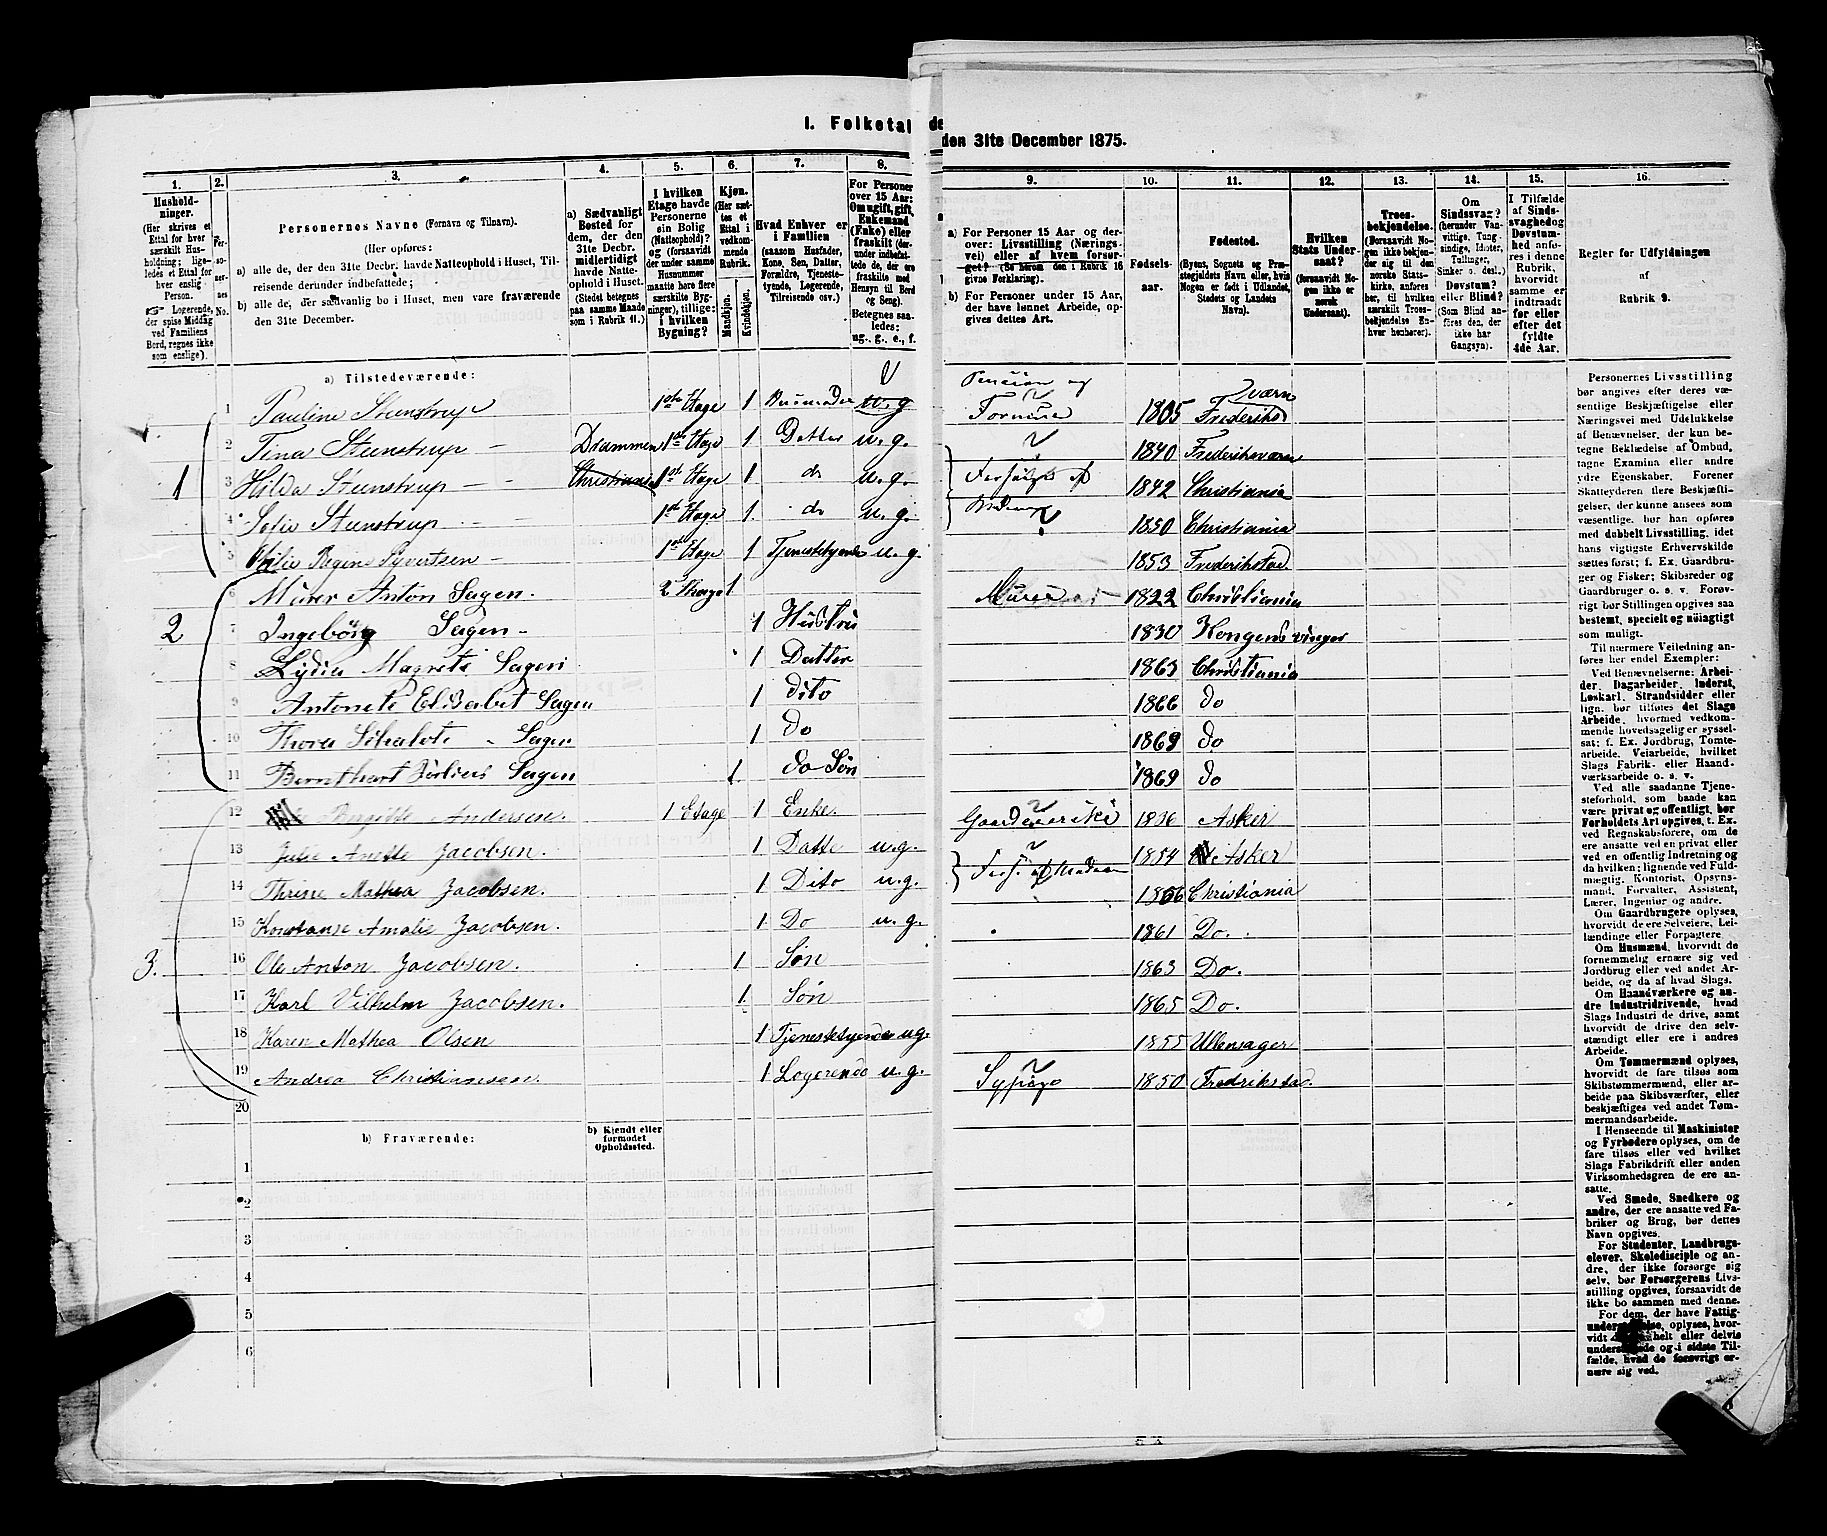 I. Folketal
den
den 31te December 1875.
1.
2.
3.
4.
5.
6.
7.
8.
9.
10.
11.
12.
13.
14.
15.
16.
Husholdninger.
(Her skrives et
Ettal for hver
særskilt Husholdning; ligeledes et Ettal for
hver enslig
Person.
☞ Logerende,
der spise Middag
ved Familiens
Bord, regnes ikke
som enslige).
Personernes No.
Personernes Navne (Fornavn og Tilnavn).
(Her opføres:
a) alle de, der den 31te Decbr. havde Natteophold i Huset, Tilreisende derunder indbefattede;
b) alle de, der sædvanlig bo i Huset, men vare fraværende
den 31te December.
a) Sædvanligt
Bosted for
dem, der den
31te Decbr.
midlertidigt
havde Natteophold i Huset.
(Stedet betegnes
paa samme Maade
som i Rubrik 11.)
I hvilken
Etage havde
Personerne
sin Bolig
(Natteophold)?
og (forsaavidt
der under samme
Husnummer
maatte høre flere
særskilte Bygninger), tillige:
i hvilken
Bygning?
Kjøn.
(Her sættes et
Ettal i
vedkommende
Rubrik.
Mandkjøn.
Kvindekjøn.
Hvad Enhver er
i Familien
(saasom Husfader,
Kone, Søn, Datter,
Forældre, Tjenestetyende, Logerende,
Tilreisende osv.)
For Personer
over 15 Aar:
Om ugift, gift,
Enkemand
(Enke) eller
fraskilt
Betegnes saaledes:
ug., g., e., f.
a) For Personer 15 Aar og derover: Livsstilling (Næringsvei) eller af hvem forsørget? (Se herom den i Rubrik 16
givne Forklaring).
b) For Personer under 15 Aar,
der have lønnet Arbeide, opgives dettes Art.
Fødselsaar.
Fødested.
(Byens, Sognets og Præstegjeldets Navn eller, hvis
Nogen er født i Udlandet,
Stedets og Landets
Navn).
Hvilken
Stats Undersaat?
(forsaavidt Nogen ikke er
norsk
Undersaat).
Troesbekjendelse.
(Forsaavidt Nogen ikke bekjender sig til den
norske Statskirke, anføres
her, til hvilken
særskilt Troesbekjendelse Enhver henhører).
Om
Sindssvag?
(herunder Vanvittige, Tungsindige, Idioter,
Tullinger,
Sinker o. desl.).
Døvstum?
eller Blind?
(Som Blind anføres den, der
ikke har
Gangsyn).
I Tilfælde
af Sindssvaghed og
Døvstumhed anføres i denne
Rubrik,
hvorvidt
samme er
indtraadt
før eller
efter det
fyldte
4de Aar.
Regler for Udfyldningen
af
Rubrik 9.
a) Tilstedeværende:
1 1 Pauline Steenstrup 1ste Etage 1 Husmoder u.g Pension og Formue 1805 Frederiksværn
2 Tina Steenstrup Drammen 1ste Etage 1 Datter u.g. 1840 Frederiksværn
3 Hilda Steenstrup Christiania 1ste Etage 1 do u.g. Forsørges af Moderen 1842 Christiania
4 Sofie Steenstrup 1ste Etage 1 do u.g. 1850 Christiania
5 Regine Syvertsen 1ste Etage 1 Tjenestetyende u.g 1853 Frederikstad
2 6 Murer Anton Sagen 2 Etage 1 Murer 1822 Christiania
7 Ingeborg Sagen 1 Hustru 1830 Kongensvinger
8 Lydia Magrete Sagen 1 Datter 1863 Christiania
9 Antonete Elisabet Sagen 1 dito 1866 do
10 Thora Sagen 1 do 1869 do
11 Sagen 1 do Søn 1869 do
3. 12 Birgitte Andersen. 1 Etage 1 Enke. 1836 Asker
13 Julie Anette Jacobsen. 1 Datte u.g. Fors. af Moderen 1854 Asker
14 Thrine Mathea Jacobsen. 1 Dito u.g. 1856 Christiania
15 Konstanse Amalie Jacobsen. 1 Do u.g. 1861 Do.
16 Ole Anton Jacobsen. 1 Søn 1863 Do.
17 Karl Vilhelm Jacobsen. 1 Søn 1865 Do.
18 Karen Mathea Olsen 1 Tjenestetyende u.g. 1855 Ullensager
19 Andrea Christiansen. 1 Logerende u.g. Sypige 1850 Frederikstad.
20
b) Fraværende:
b) Kjendt eller
formodet
Opholdssted.
1
2
3
4
5
6
Personernes Livsstilling
bør angives efter deres væsentlige Beskjæftigelse eller
Næringsvei med Udelukkelse
af Benævnelser, der kun betegne Beklædelse af Ombud,
tagne Examina eller andre
ydre Egenskaber. Forener
Skatteyderen flere Beskjæftigelser, der kunne ansees som
væsentlige, bør han opføres
med dobbelt Livsstilling, idet
hans vigtigste Erhvervskilde
sættes først; f. Ex. Gaardbruger og Fisker; Skibsreder og
Gaardbruger o. s. v. Forøvrigt bør Stillingen opgives saa
bestemt, specielt og nøiagtigt
som muligt.
Til nærmere Veiledning anføres her endel Exempler:
Ved Benævnelserne: Arbeider, Dagarbeider, Inderst,
Løskarl, Strandsidder eller
lign. bør tilføies det Slags
Arbeide, hvormed vedkommende hovedsagelig er sysselsat; f. Ex. Jordbrug, Tomtearbeide, Veiarbeide, hvilket
Slags Fabrik- eller Haandværksarbeide o. s. v.
Ved alle saadanne Tjenesteforhold, som baade kan
være privat og offentligt, bør
Forholdets Art opgives, t. Ex.
ved Regnskabsførere, om de
ere ansatte ved en privat eller
ved en offentlig Indretning og
da hvilken; lignende ved Fuldmægtig, Kontorist, Opsynsmand, Forvalter, Assistent,
Lærer, Ingeniør og andre.
Om Gaardbrugere oplyses,
hvorvidt de ere Selveiere, Leilændinge eller Forpagtere.
Om Husmænd, hvorvidt de
fornemmelig ernære sig ved
Jordbrug eller ved andet Arbeide, og da af hvad Slags.
Om Haandværkere og andre Industridrivende, hvad
Slags Industri de drive, samt
hvorvidt de drive den selvstændigt eller ere i andres
Arbeide.
Om Tømmermænd oplyses,
hvorvidt de fare tilsøs som
Skibstømmermænd, eller arbeide paa Skibsværfter, eller
beskjæftiges ved andet Tømmermandsarbeide.
I Henseende til Maskinister
og Fyrbødere oplyses, om de
fare tilsøs eller ved hvilket
Slags Fabrikdrift eller anden
Virksomhedsgren de ere ansatte.
Ved Smede, Snedkere og
andre, der ere ansatte ved Fabriker og Brug, bør dettes
Navn opgives.
For Studenter, Landbrugselever, Skoledisciple og andre, der ikke forsørge sig
selv, bør Forsørgerens Livsstilling opgives, forsaavidt de
ikke bo sammen med denne.
For dem, der have Fattigunderstøttelse, oplyses, hvorvidt de helt eller delvis
understøttede og i sidste Tilfælde, hvad de forøvrigt ernære sig ved.